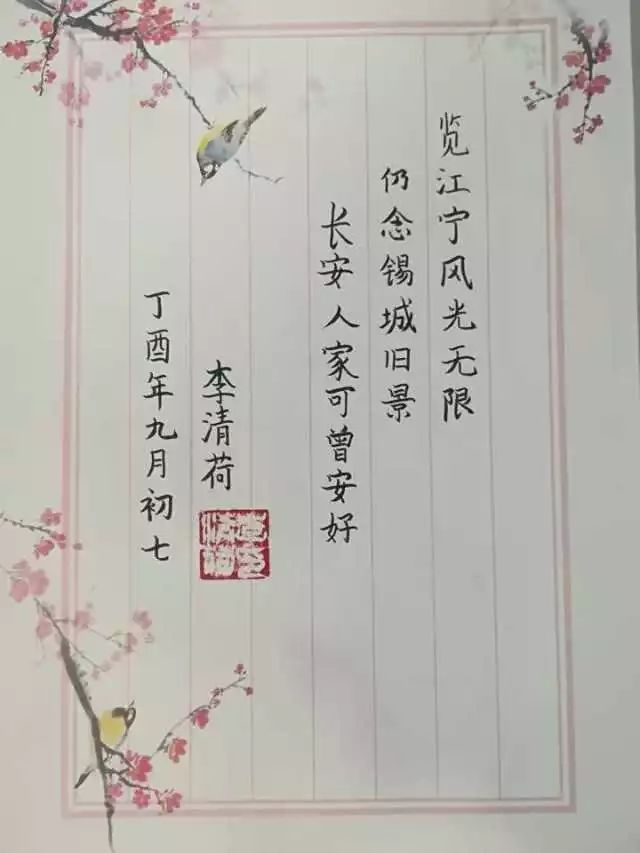 览江宁风光无限
仍念锡城旧景
长安人家可曾安好
李清荷
丁酉年九月初七